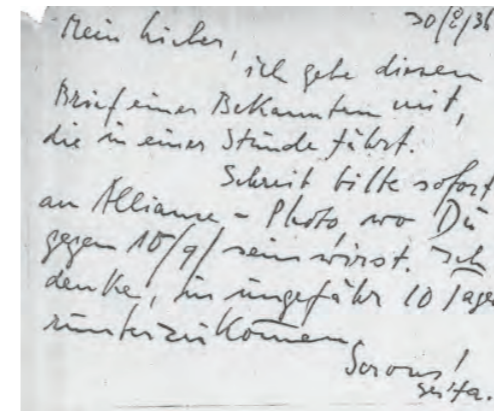 30/8/36
Mein Lieber,
ich gebe diesen
Brief einer Bekannten mit,
die in einer Stunde fährt.
Schreib bitte sofort
an Alliance-Photo, wo Du
gegen sein wirst. Ich
denke, in ungefähr 10 Tage
runterzukommen
Servus!
Gerta.